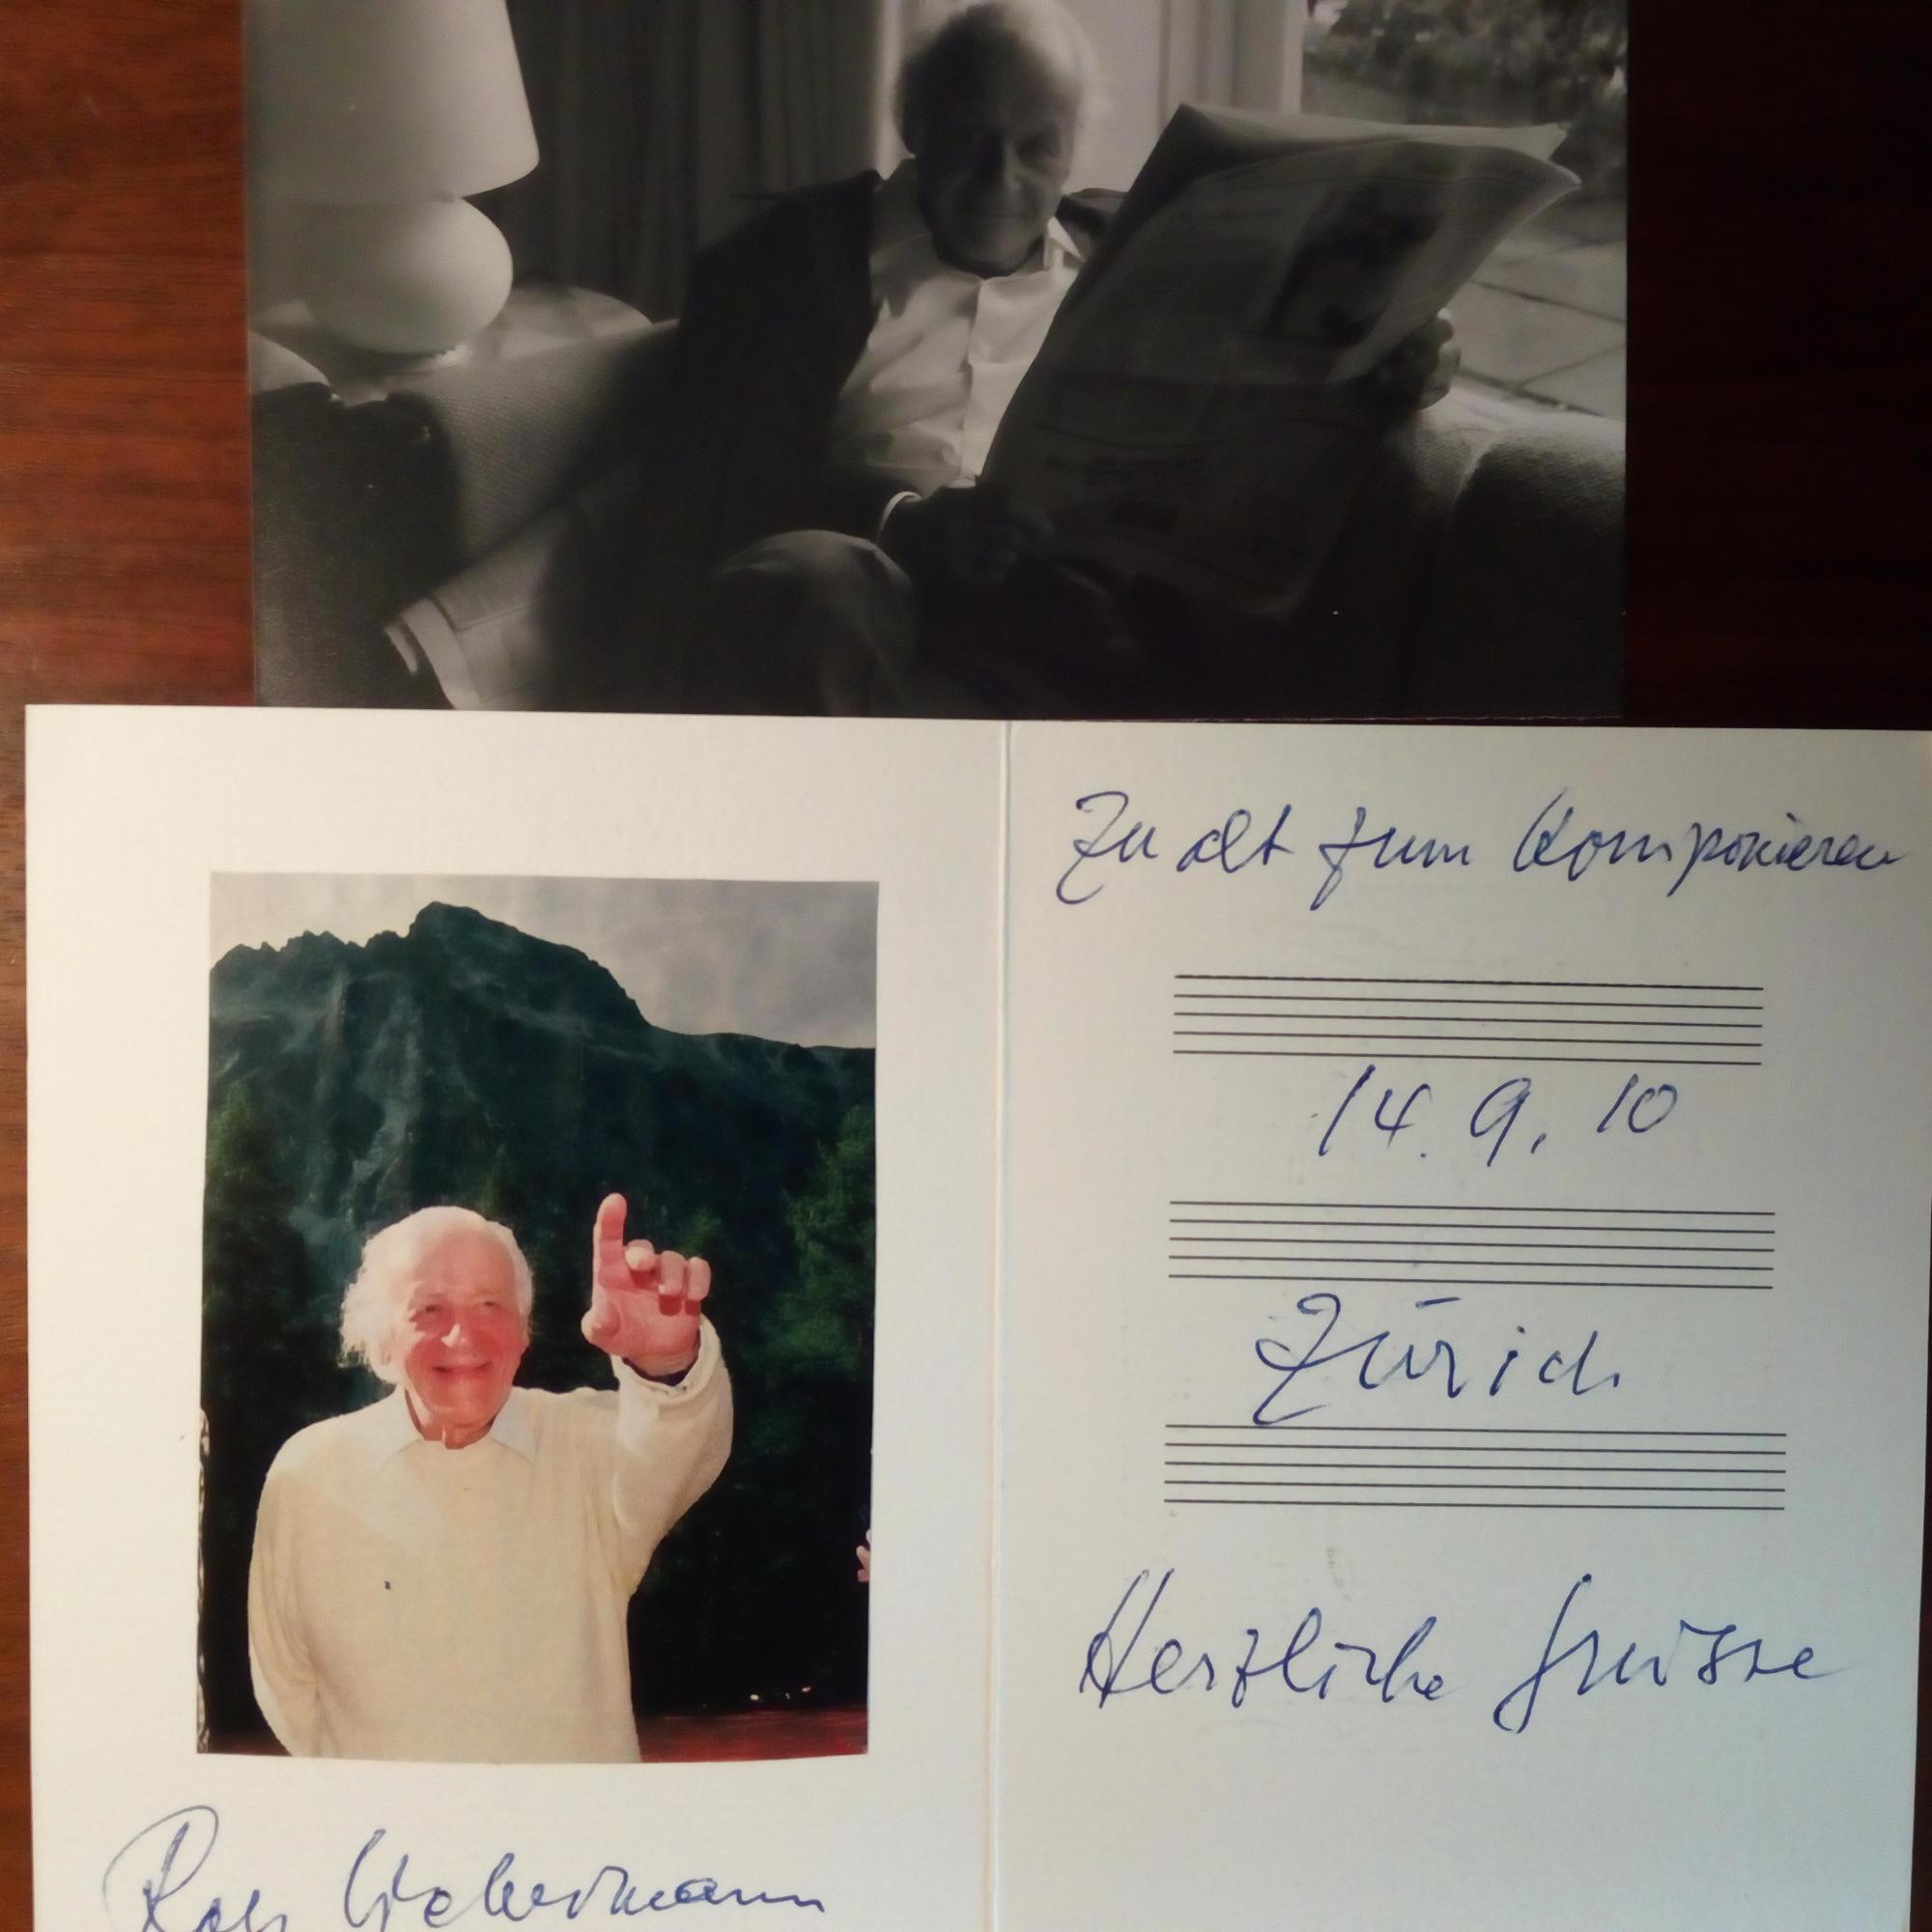 Zu alt zum Komponieren
14. 9. 10
Zürich
Herzliche Grüsse
Rolf Liebermann